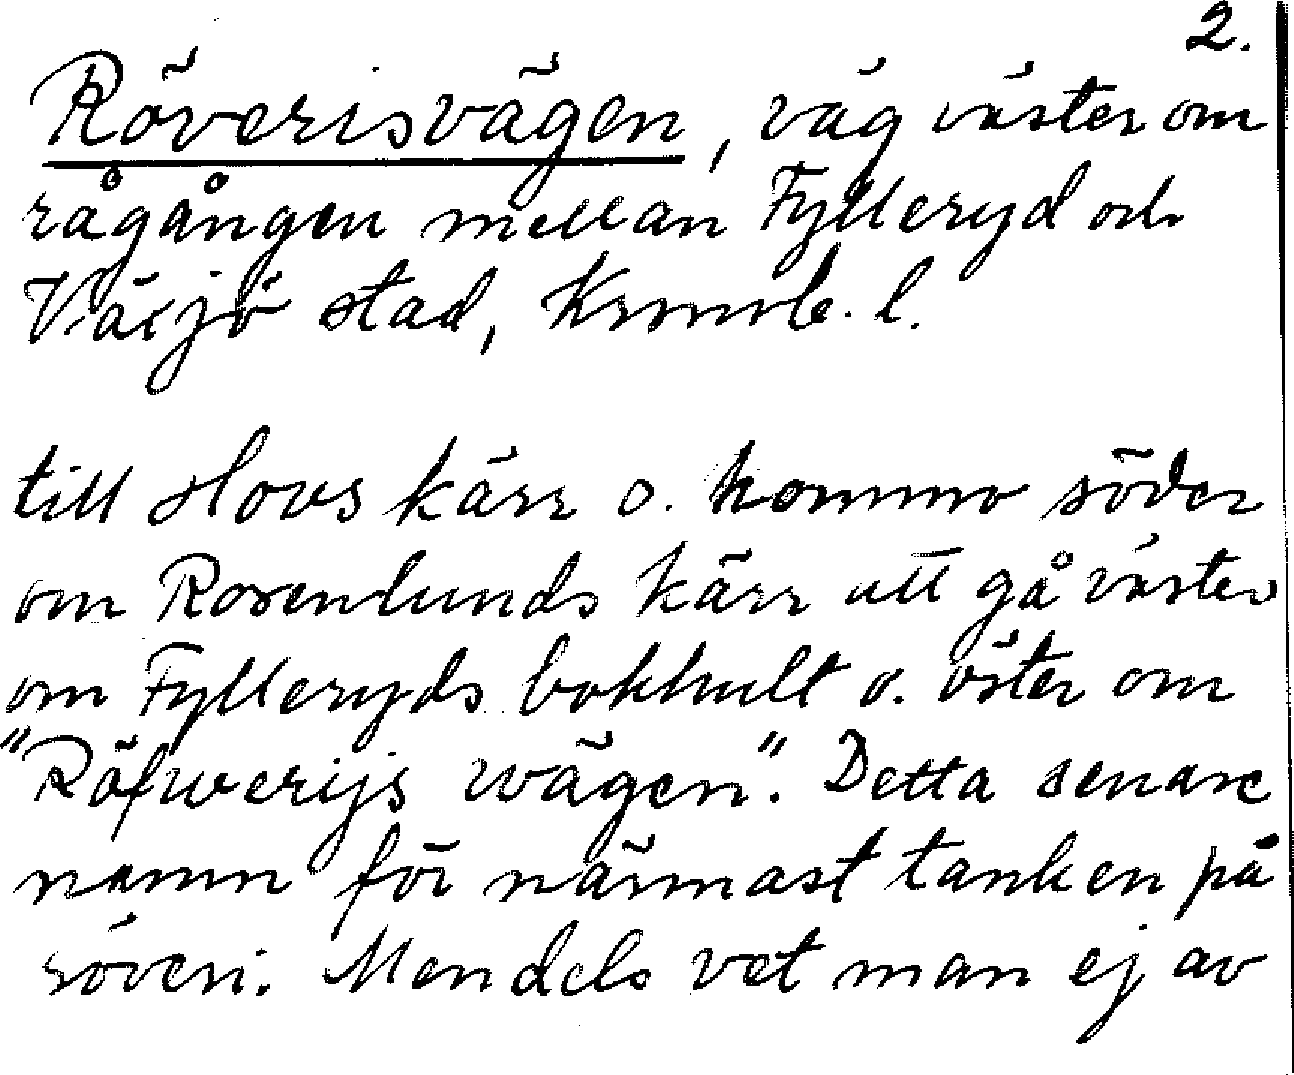 2.
Röverisvägen, väg väster om
rågången mellan Fylleryd och
Växjö stad, Kronob. l.
till Hovs kärr o. komma söder
om Rosenlunds kärr att gå väster
om Fylleryds bokhult o. öster om
"Röfwerijs wägen". Detta senare
namn för närmast tanken på
röveri. Mendels vet man ej av